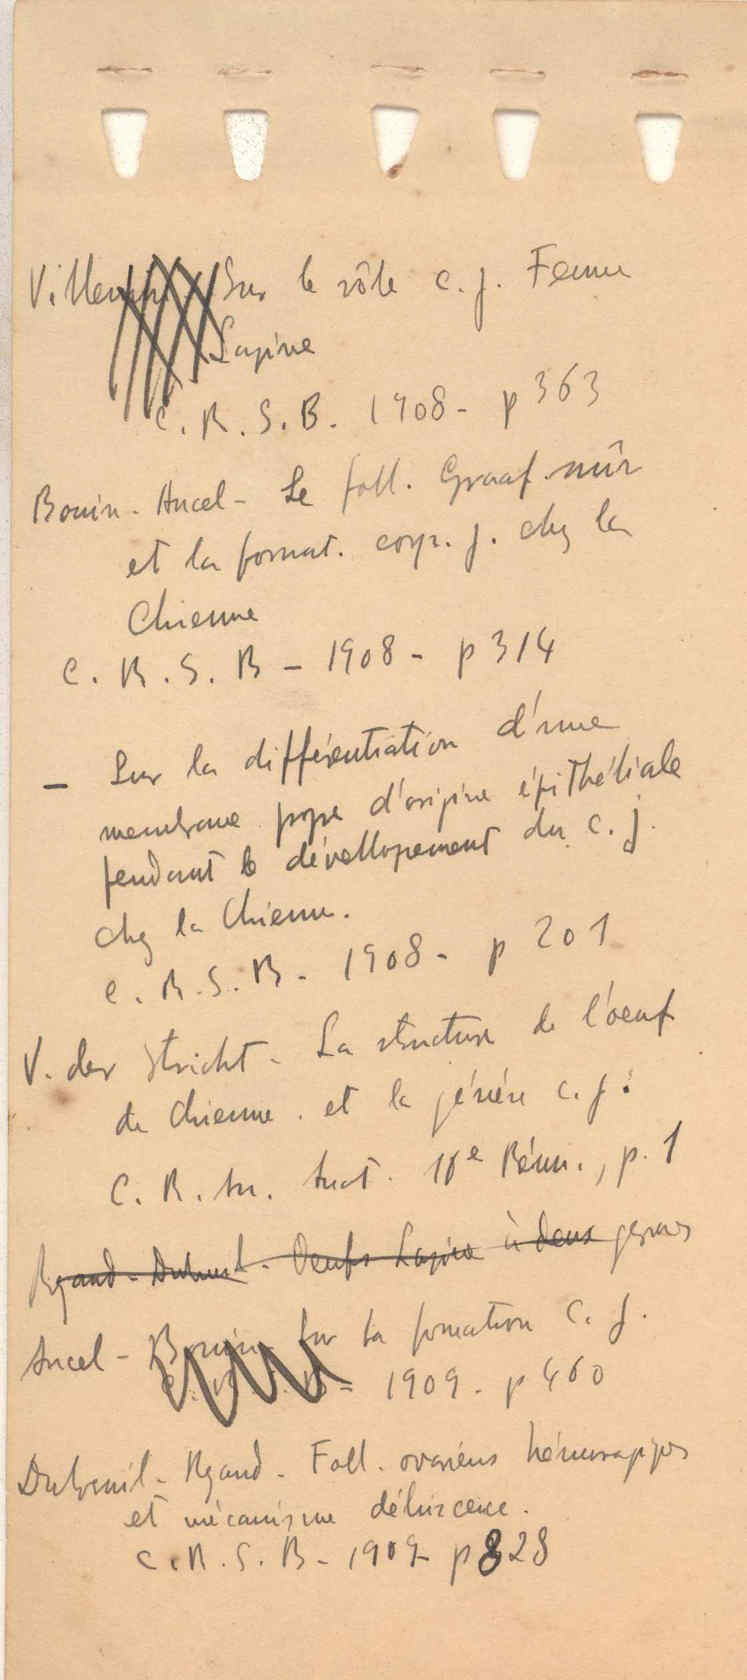 Villemin. Sur le rôle c. j. Femme
Lapine
C. R. S. B. 1908 - p 363
Bouin - Ancel - Le foll. Graaf mûr
et la format. corp. j. chez la
Chienne
C. R. S. B - 1908 - p 314
- Sur la différentiation d'une
membrane propre d'origine épithéliale
pendant le dévellopement du c. j.
chez la Chienne.
C. R. S. B. - 1908 - p 201
V. der Stricht - La structure de l'oeuf
de chienne. et la génèse c. j.
C. R. An. Anat. Réun., p. 1
Regaud - Dubreuil - Oeufs Lapine à deux germes
Ancel - Bouin Sur la formation C. j.
1909 - p 460
Dubreuil - Regaud - Foll. ovariens hémorragiques
et mécanisme déhiscence.
C. R. S. B - 1909 p 828